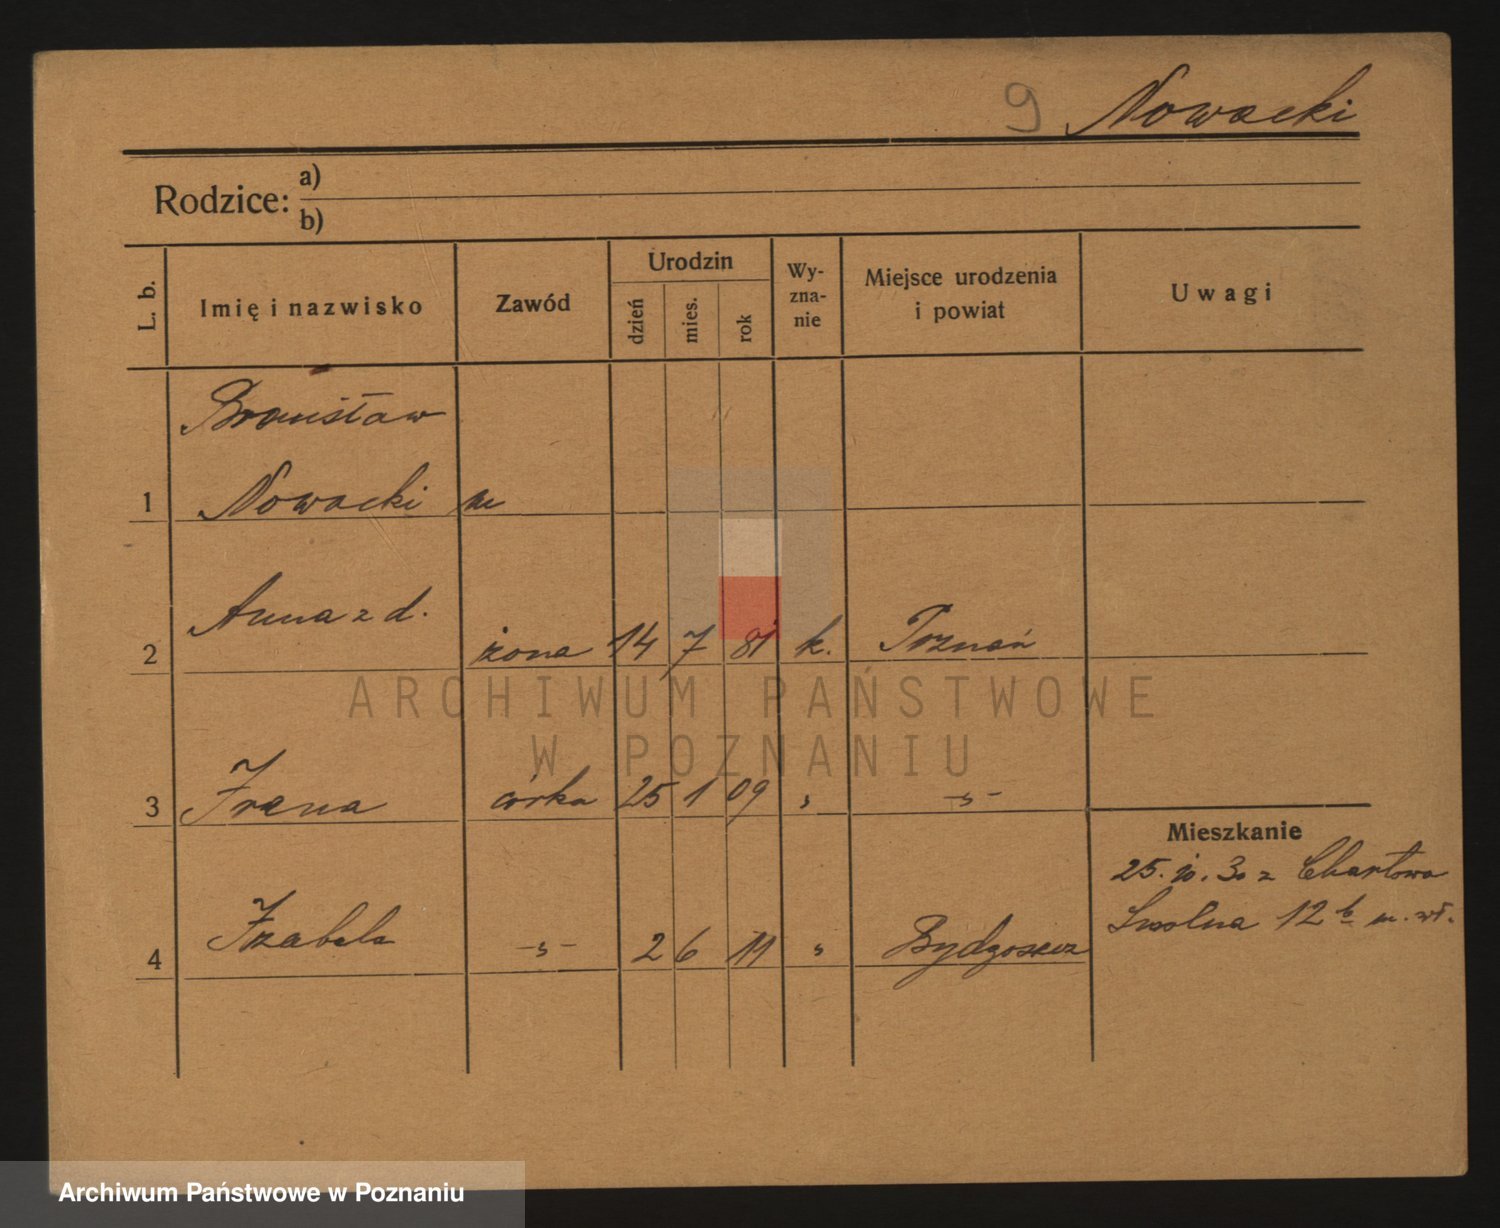 9 Nowacki
Rodzice: a)
b)
L. b. Imię i nazwisko Zawód Urodzin dzień mies. rok Wy-zna-nie Miejsce urodzenia i powiat Uwagi
Bronisław
1 Nowacki
Anna z d.
2 żona 14 7 81 k. Poznań
ARCHIWUM PAŃSTWOWE
W POZNANIU
3 Irena córka 25 1 09 „ -„-
Mieszkanie
25. 10. 30 z Chartowa
12 b m. wł.
4 Izabela -„- 2 6 11 „ Bydgoszcz
Archiwum Państwowe w Poznaniu